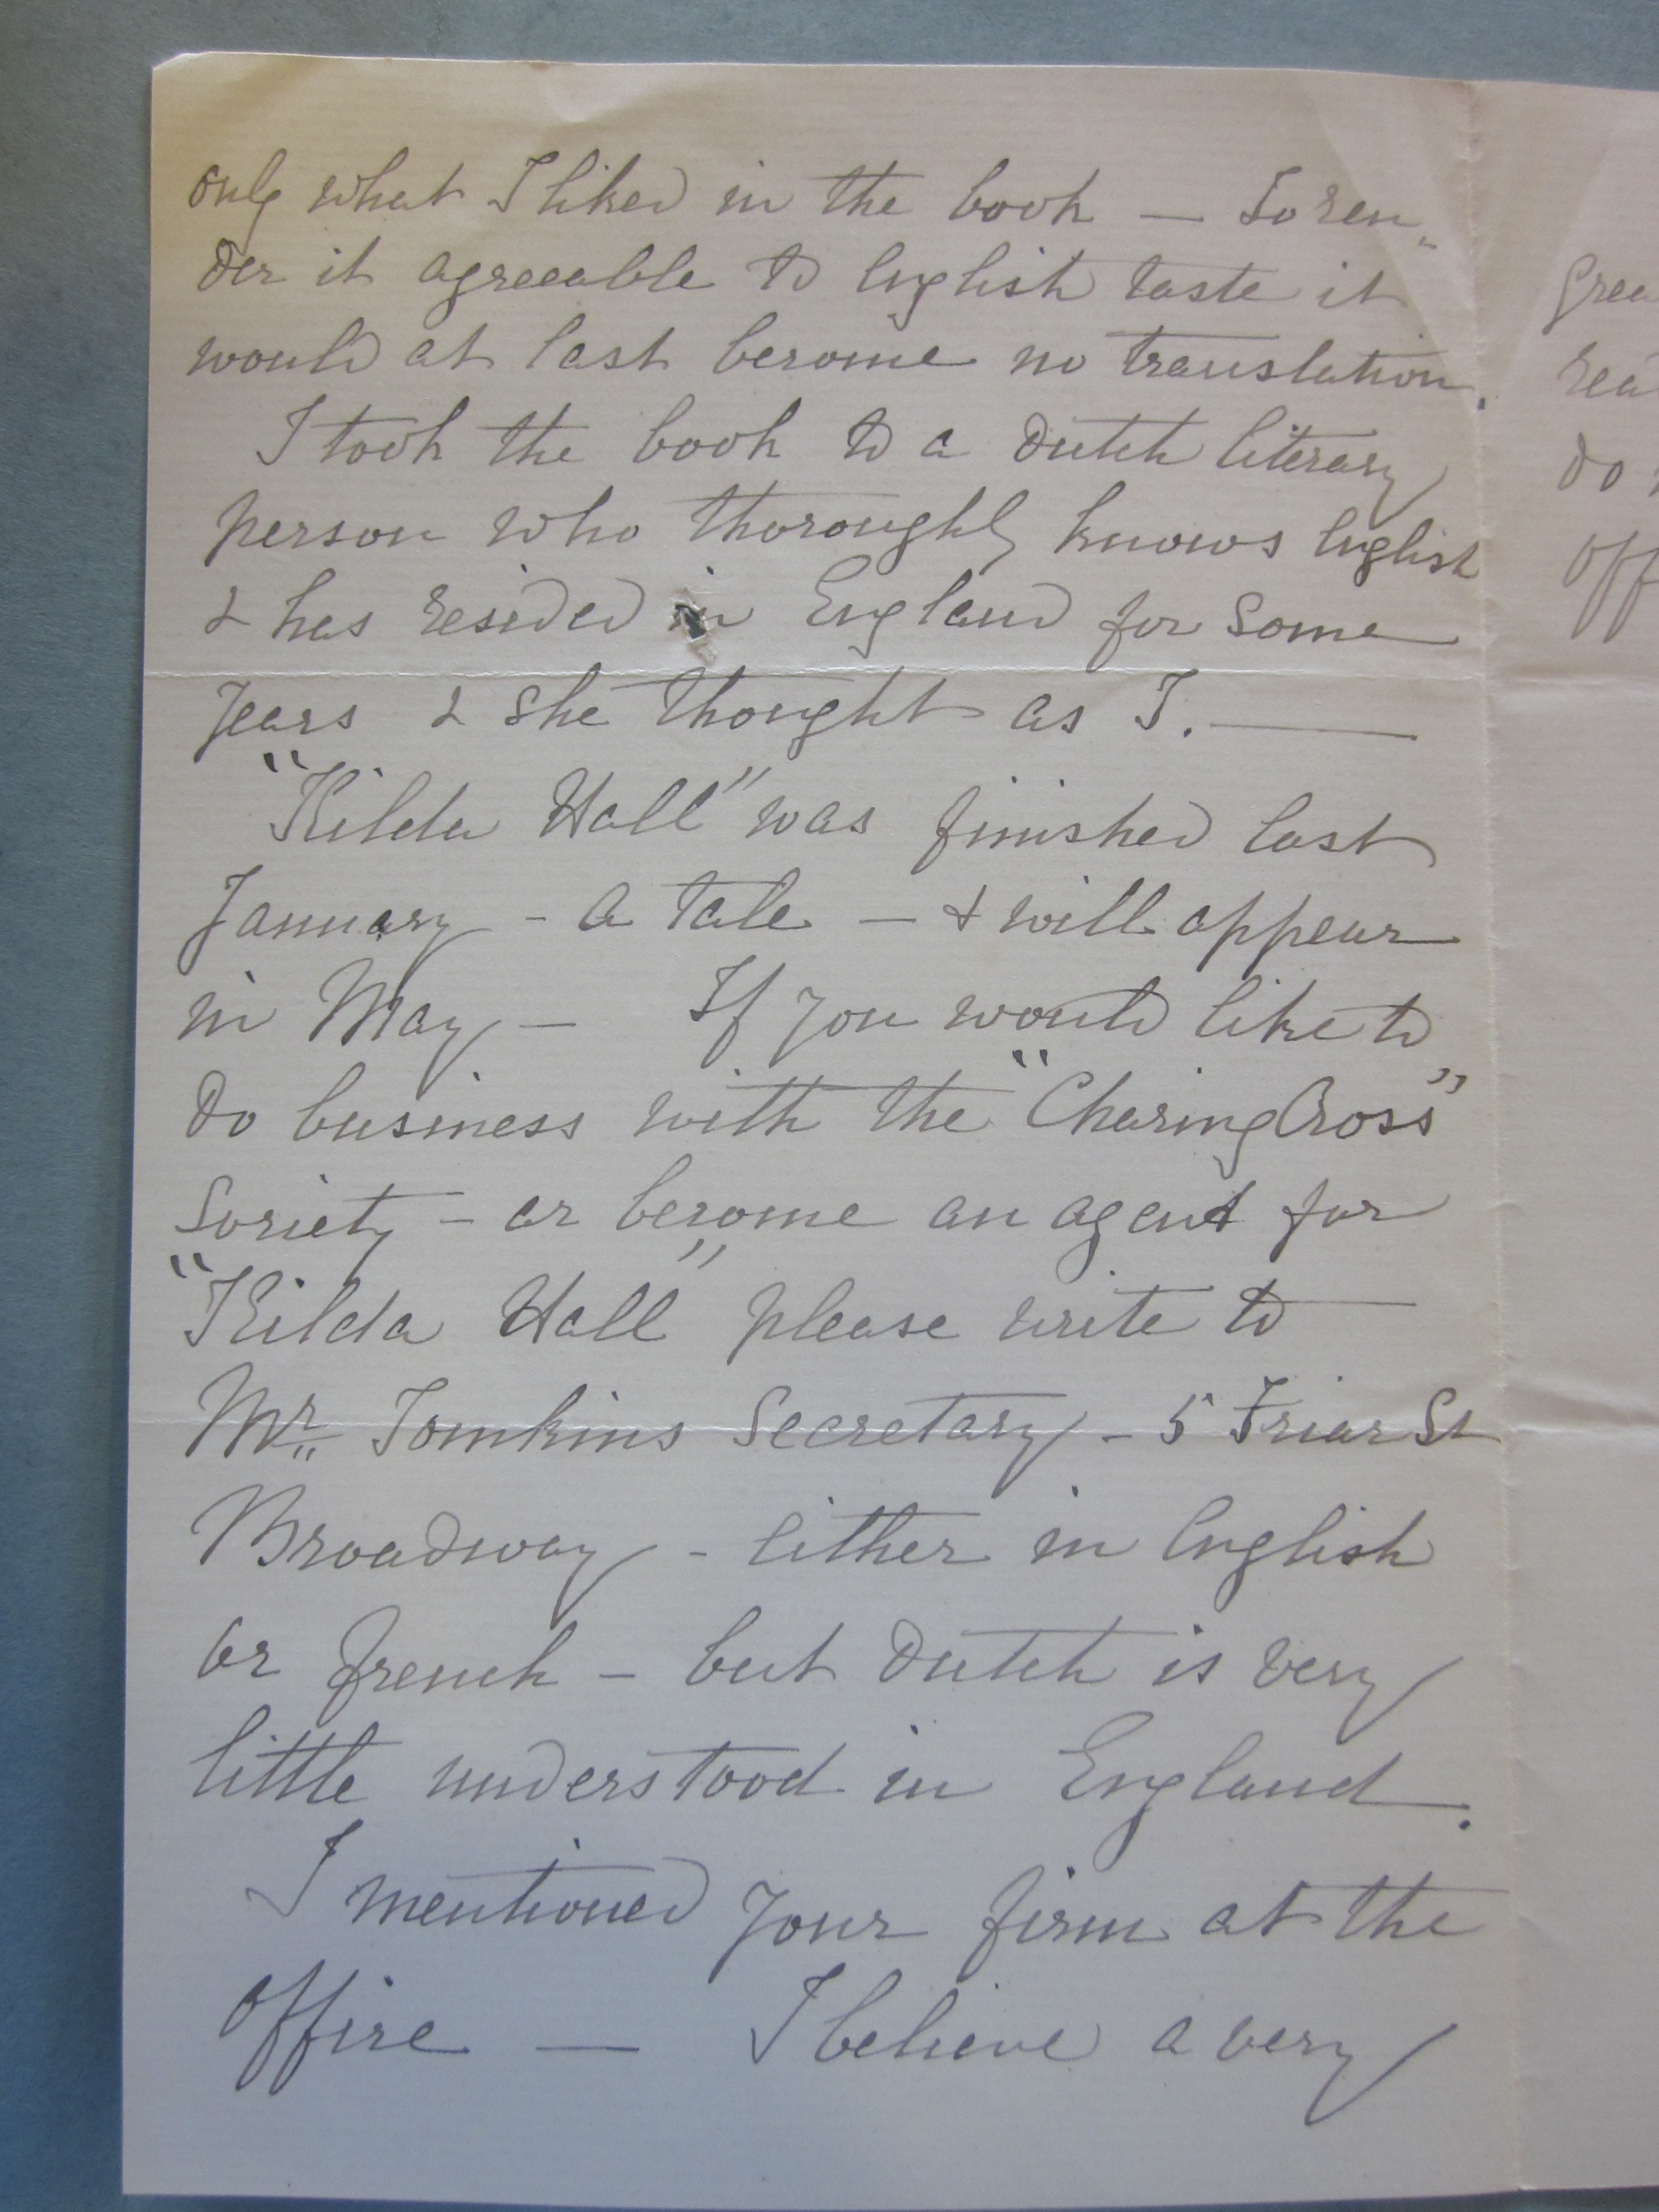 only what I liked in the book — To ren„
der it agreeable to english taste it
would at last become no translation.
I took the book to a Dutch literary
person who thoroughly knows english
& has resided in England for some
years & she thought as I. —
"Kilda Hall" was finished last
January - a tale — & will appear
in May — If you would like to
do business with the "Charing Cross"
Society - or become an agent for
"Kilda Hall" please write to —
Mr Tomkins Secretary - 5 Friar St
Broadway - either in english
or french - but Dutch is very
little understood in England.
I mentioned your firm at the
office — I believe a very
grea
rea
do
off